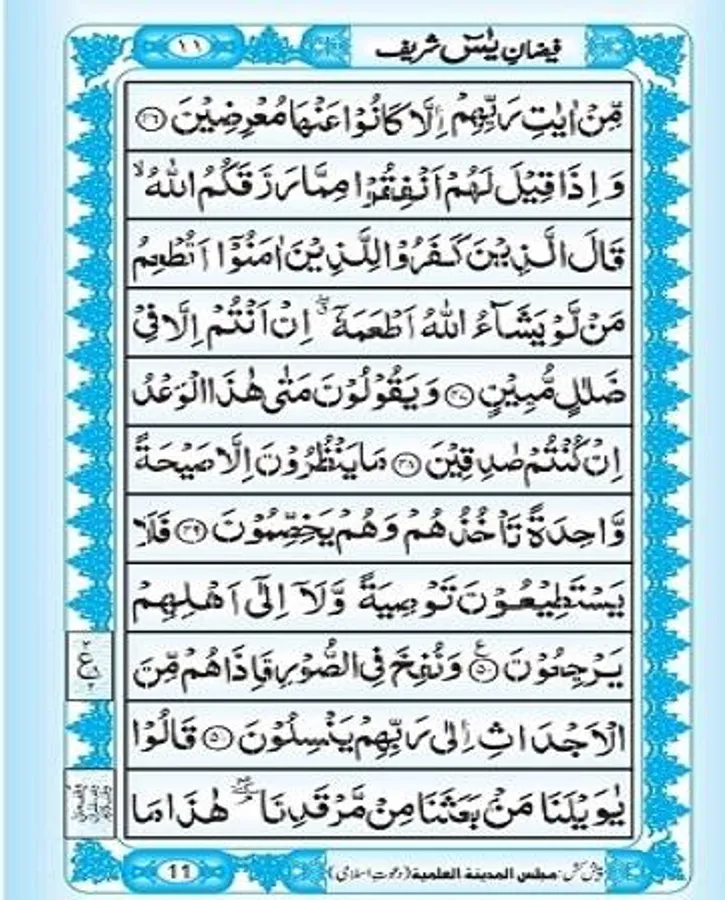 فیضانِ یٰسٓ شریف
۱۱
مِّنْ اٰیٰتِ رَبِّهِمْ اِلَّا كَانُوْا عَنْهَا مُعْرِضِیْنَ ﴿۴۶﴾
وَ اِذَا قِیْلَ لَهُمْ اَنْفِقُوْا مِمَّا رَزَقَكُمُ اللّٰهُ ۙ
قَالَ الَّذِیْنَ كَفَرُوْا لِلَّذِیْنَ اٰمَنُوْۤا اَنُطْعِمُ
مَنْ لَّوْ یَشَآءُ اللّٰهُ اَطْعَمَهٗۤ ۖۗ اِنْ اَنْتُمْ اِلَّا فِیْ
ضَلٰلٍ مُّبِیْنٍ ﴿۴۷﴾ وَ یَقُوْلُوْنَ مَتٰى هٰذَا الْوَعْدُ
اِنْ كُنْتُمْ صٰدِقِیْنَ ﴿۴۸﴾ مَا یَنْظُرُوْنَ اِلَّا صَیْحَةً
وَّاحِدَةً تَاْخُذُهُمْ وَ هُمْ یَخِصِّمُوْنَ ﴿۴۹﴾ فَلَا
یَسْتَطِیْعُوْنَ تَوْصِیَةً وَّ لَاۤ اِلٰۤى اَهْلِهِمْ
یَرْجِعُوْنَ ﴿۵۰﴾ وَ نُفِخَ فِی الصُّوْرِ فَاِذَا هُمْ مِّنَ
ع
الْاَجْدَاثِ اِلٰى رَبِّهِمْ یَنْسِلُوْنَ ﴿۵۱﴾ قَالُوْا
یٰوَیْلَنَا مَنْۢ بَعَثَنَا مِنْ مَّرْقَدِنَا ۘ هٰذَا مَا
پیش کش: مجلس المدینة العلمیة (دعوتِ اسلامی)
11